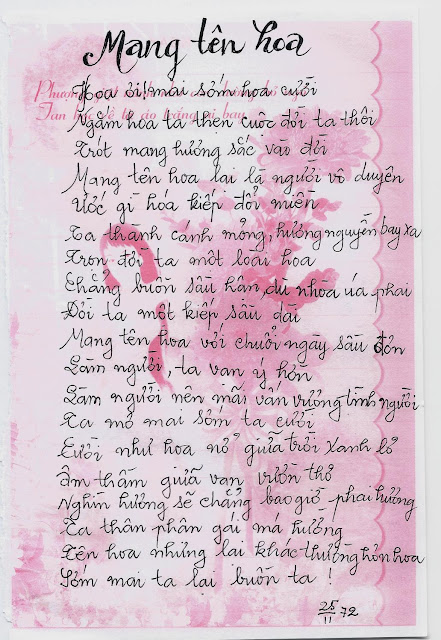 Mang tên hoa
Hoa ơi, mai sớm hoa cười
Ngắm hoa ta thẹn cuộc đời ta thôi
Trót mang hương sắc vào đời
Mang tên hoa lại là người vô duyên
Ước gì hóa kiếp đổi miền
Ta thành cánh mỏng, hương nguyền bay xa
Trọn đời ta một loài hoa
Chẳng buồn sầu hận, dù nhòa úa phai
Đời ta một kiếp sầu dài
Mang tên hoa với chuỗi ngày sầu đơn
Làm người, ta vạn ý hờn
Làm người nên mãi vấn vương tình người
Ta mơ mai sớm ta cười
Cười như hoa nở giữa trời xanh lơ
Âm thầm giữa vạn vườn thơ
Nghìn hương sẽ chẳng bao giờ phai hương
Ta thân phận gái má hường
Tên hoa nhưng lại khác thường hơn hoa
Sớm mai ta lại buồn ta !
25/11 72